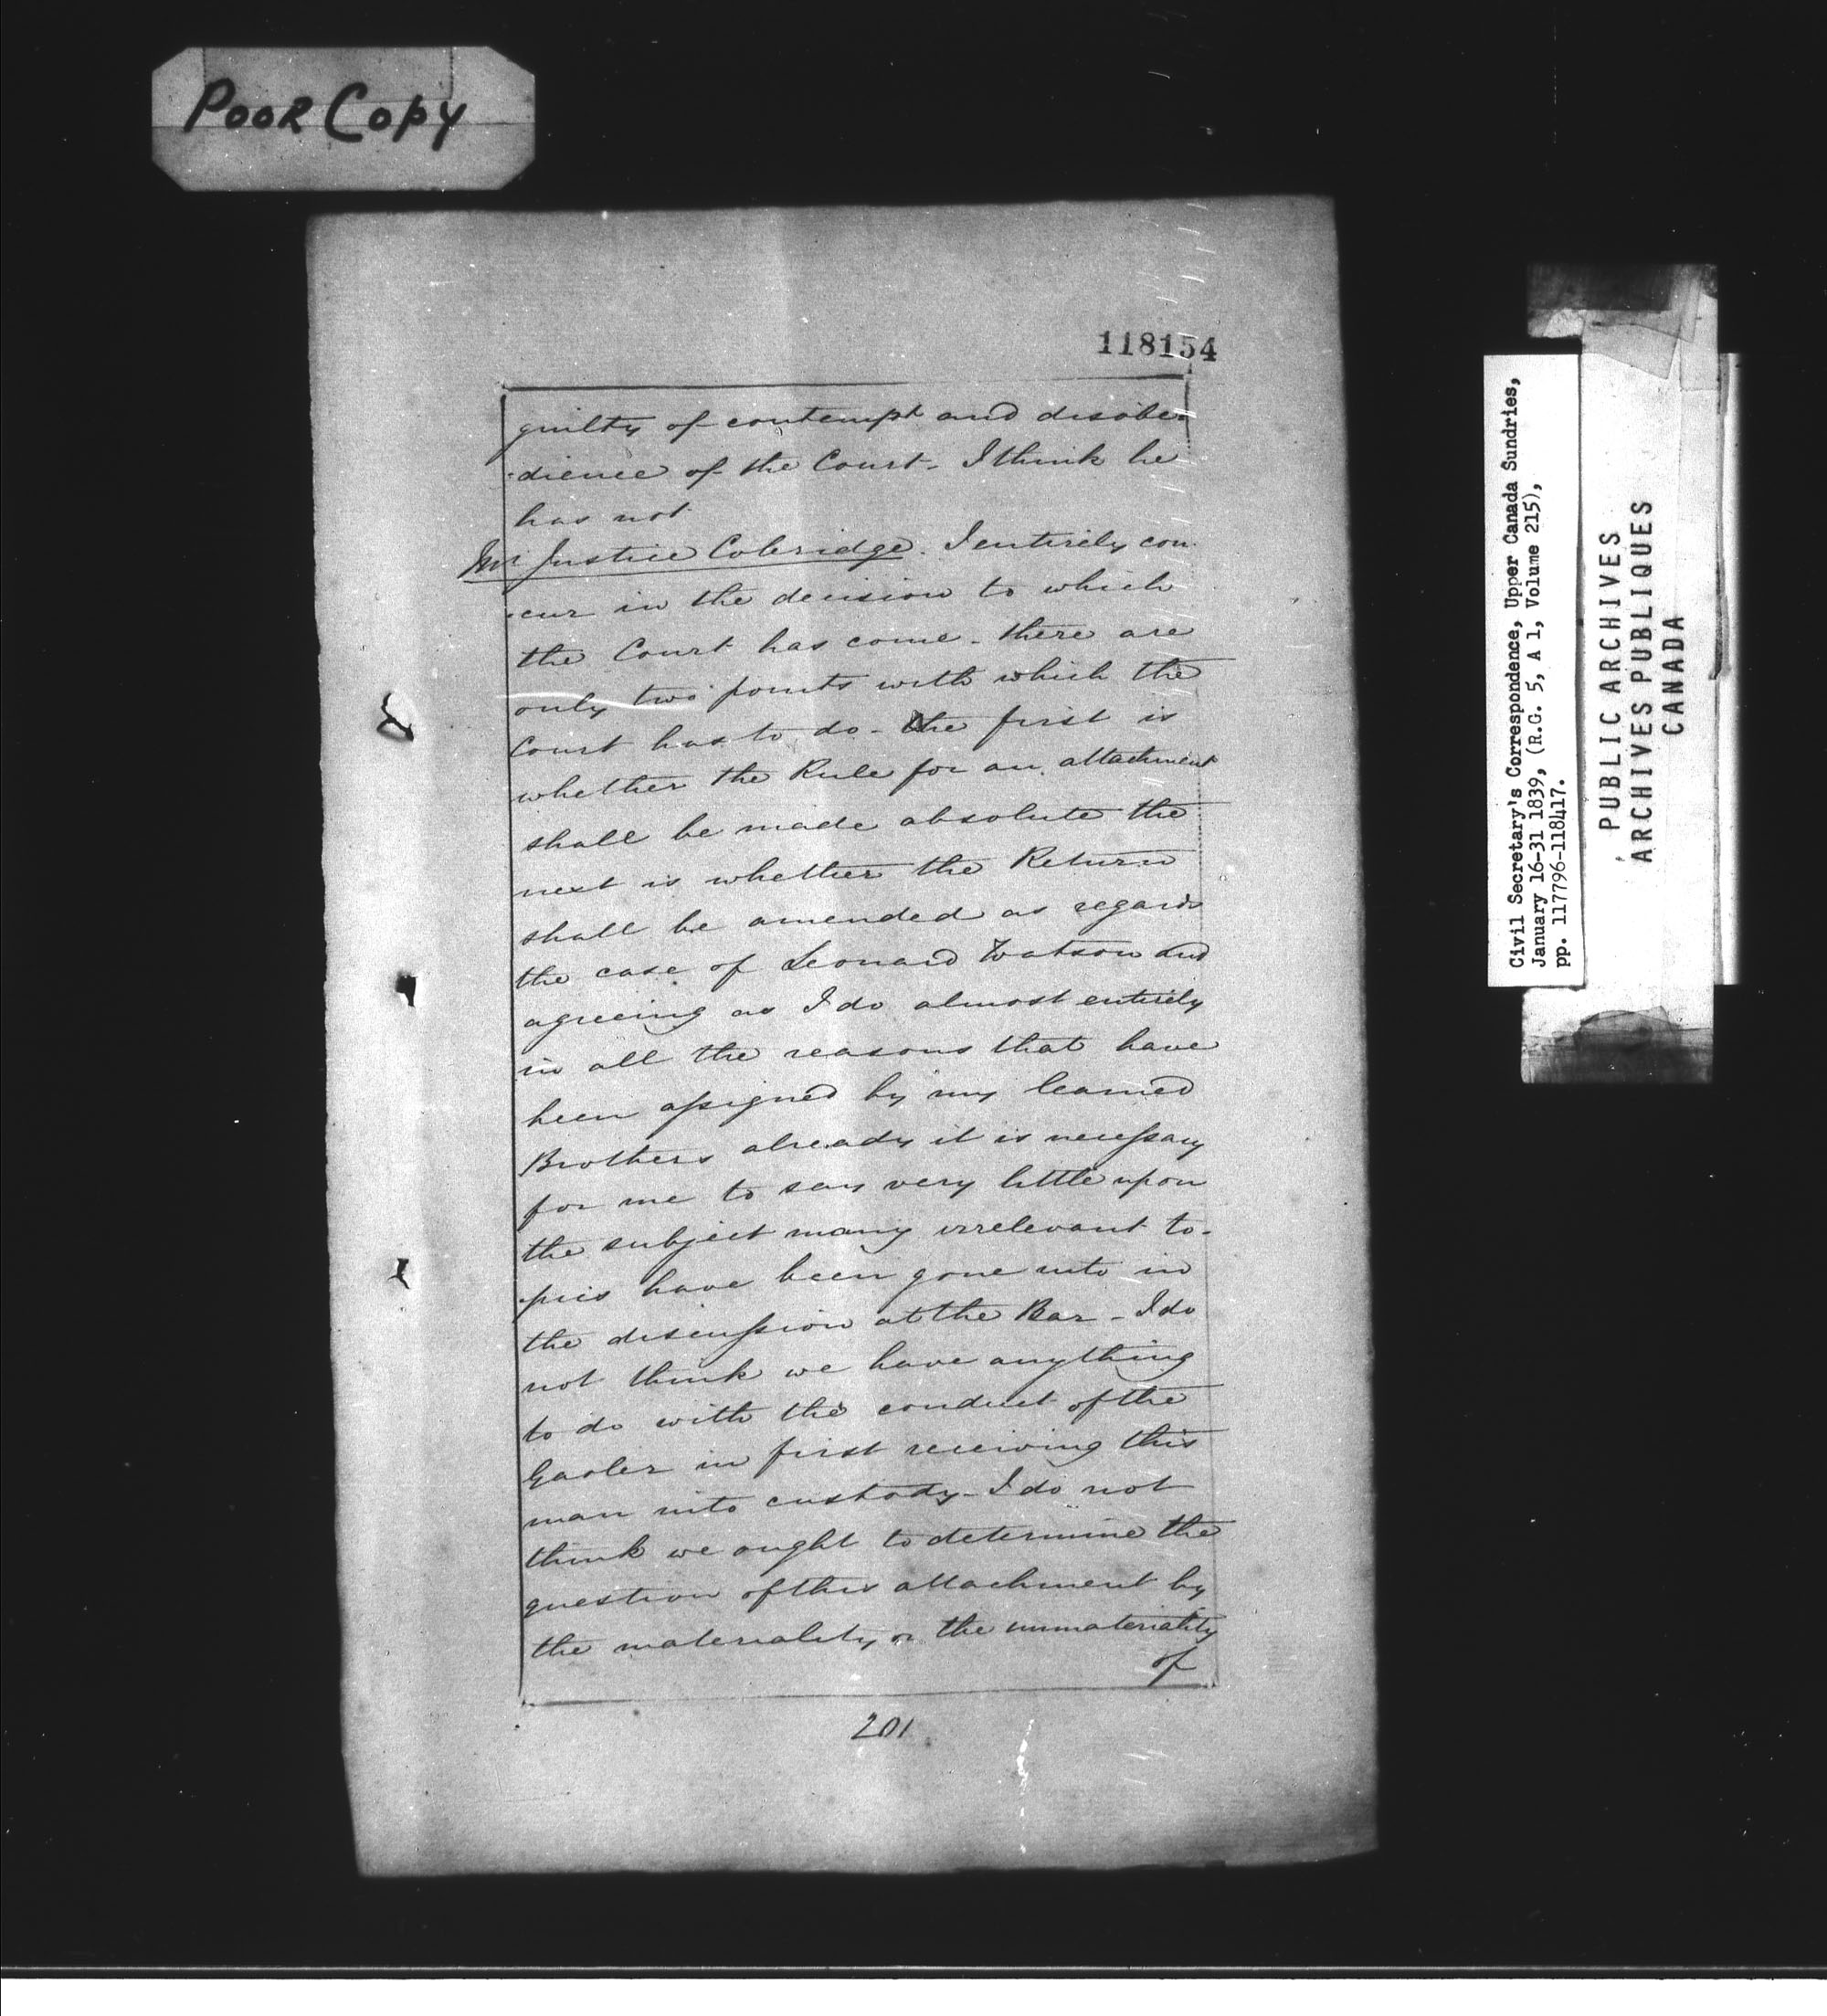 POOR COPY
118154
guilty of contempt and disobe-
-dience of the Court. I think he
has not.
Mr Justice Coleridge. I entirely con-
-cur in the decision to which
the Court has come - there are
only two points with which the
Court has to do - the first is
whether the Rule for an attachment
shall be made absolute the
next is whether the Return
shall be amended as regards
the case of Leonard Watson and
agreeing as I do almost entirely
in all the reasons that have
been assigned by my learned
Brothers already it is necessary
for me to say very little upon
the subject many irrelevant to-
-pics have been gone into in
the discussion at the Bar - I do
not think we have anything
to do with the conduct of the
Gaoler in first receiving this
man into custody - I do not
think we ought to determine the
question of this attachment by
the materiality or the immateriality
of
201
Civil Secretary's Correspondence, Upper Canada Sundries,
January 16-31 1839, (R.G. 5, A 1, Volume 215),
pp. 117796-118417.
PUBLIC ARCHIVES
ARCHIVES PUBLIQUES
CANADA